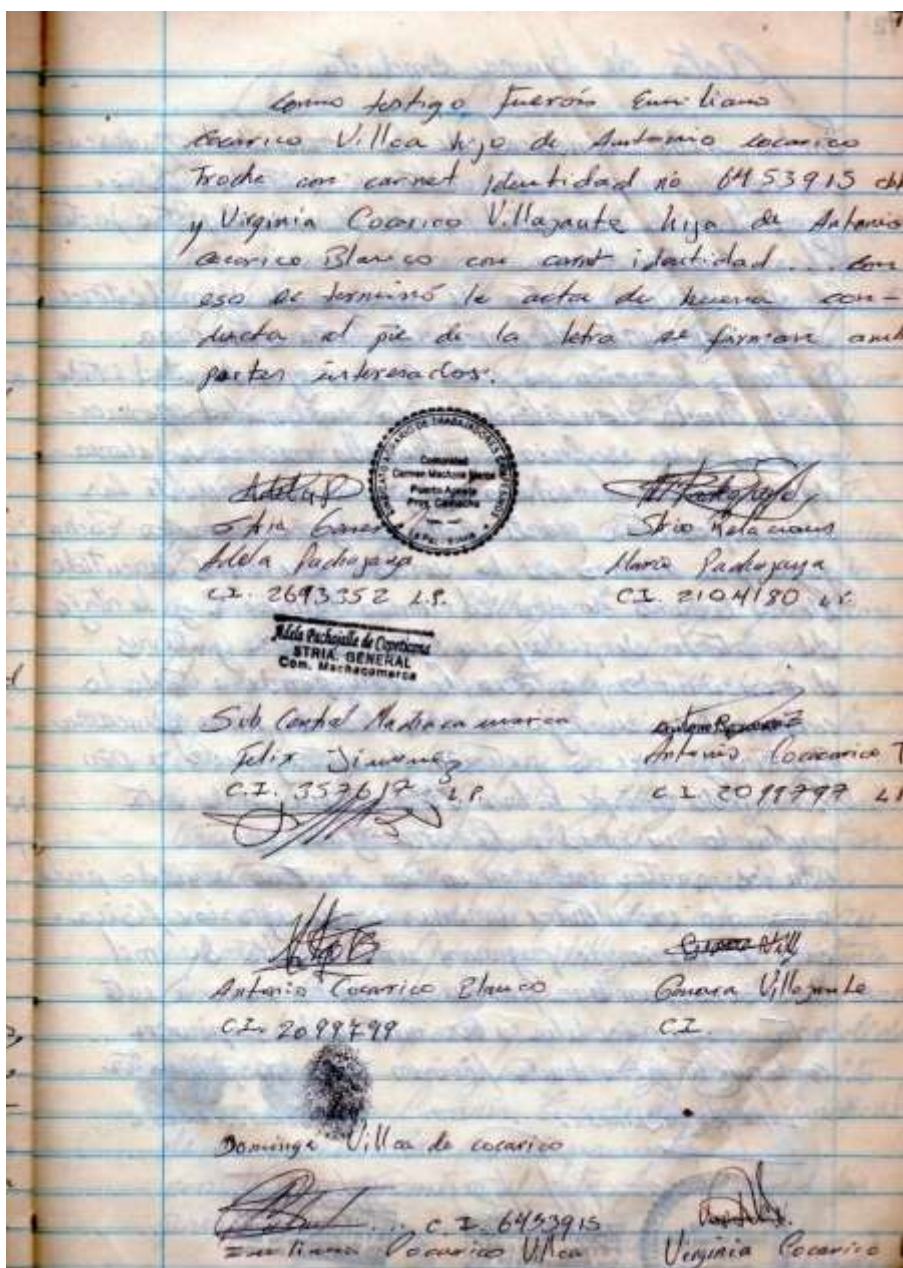 Como testigo fuerón Emiliano
Cocarico Villca hijo de Antonio Cocarico
Troche con carnet identidad no 6453915
y Virginia Cocarico Villazante hija de Antonio
Cocarico Blanco con carnet identidad ... Con
eso se terminó la acta de buena con-
ducta al pie de la letra se firman amb
partes interesados.
SINDICATO AGRARIO DE TRABAJADORES
Comunidad
Puerto Acosta
Prov. Camacho
La Paz - Bolivia
Adela P
Stria General
Adela Pachajaya
C.I. 2693352 L.P.
Strio Relaciones
Mario Pachajaya
C.I. 2104180 L.P.
Adela Pachajalla de
STRIA. GENERAL
Com. Machacamarca
Sub Central Machacamarca
Felix Jimenez
C.I. 357617 L.P.
Antonio Cococarico T
C.I. 2099797 L.P
Antonio Cocarico Blanco
C.I. 2099799
Villazante
C.I.
Dominga Villca de cocarico
... C.I. 6453915
Emiliano Cocarico Villca
Virginia Cocarico